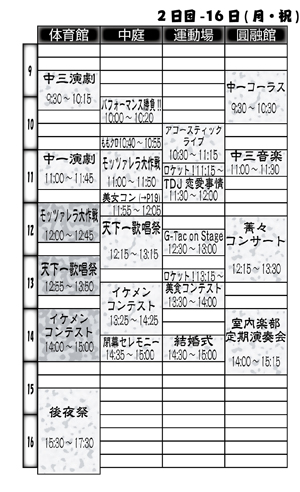 2日目-16日(月・祝)
体育館 中庭 運動場 圓融館
9
10
11
12
13
14
15
16
中三演劇
9:30～10:15
中一演劇
11:00～11:45
モッツァレラ大作戦
12:00～12:45
天下一歌唱祭
12:55～13:50
イケメン
コンテスト
14:00～15:00
後夜祭
15:30～17:30
パフォーマンス勝負!!
10:00～10:20
ももクロ10:40～10:55
モッツァレラ大作戦
11:00～11:50
美女コン(→P19)
11:55～12:05
天下一歌唱祭
12:15～13:15
イケメン
コンテスト
13:25～14:25
閉幕セレモニー
14:35～15:00
アコースティック
ライブ
10:30～11:15
ロケット!11:15～
TDJ 恋愛事情
11:30～12:00
G-Tac on Stage
12:30～13:00
ロケット!13:15～
美食コンテスト
13:30～14:00
結婚式
14:30～15:00
中一コーラス
9:30～10:30
中三音楽
11:00～11:30
菁々
コンサート
12:15～13:30
室内楽部
定期演奏会
14:00～15:15